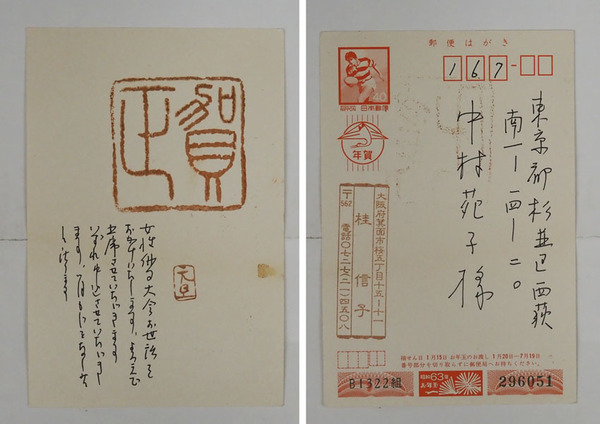 賀正
元旦
女性俳句大会お世話を
おかけいたします よろこんで
出席させていただきます
郵便はがき
167-
日本郵便
年賀
東京都杉並区西荻
南一ー一四ー二〇
中村苑子様
大阪府箕面市桜五丁目十五ー十一
桂信子
〒562
電話〇七二七(二一)四五〇八
抽せん日 1月15日 お年玉のお渡し 1月20日―7月19日
番号部分を切り取らずに郵便局へお持ちください。
B1322組
昭和63年
お年玉
296051